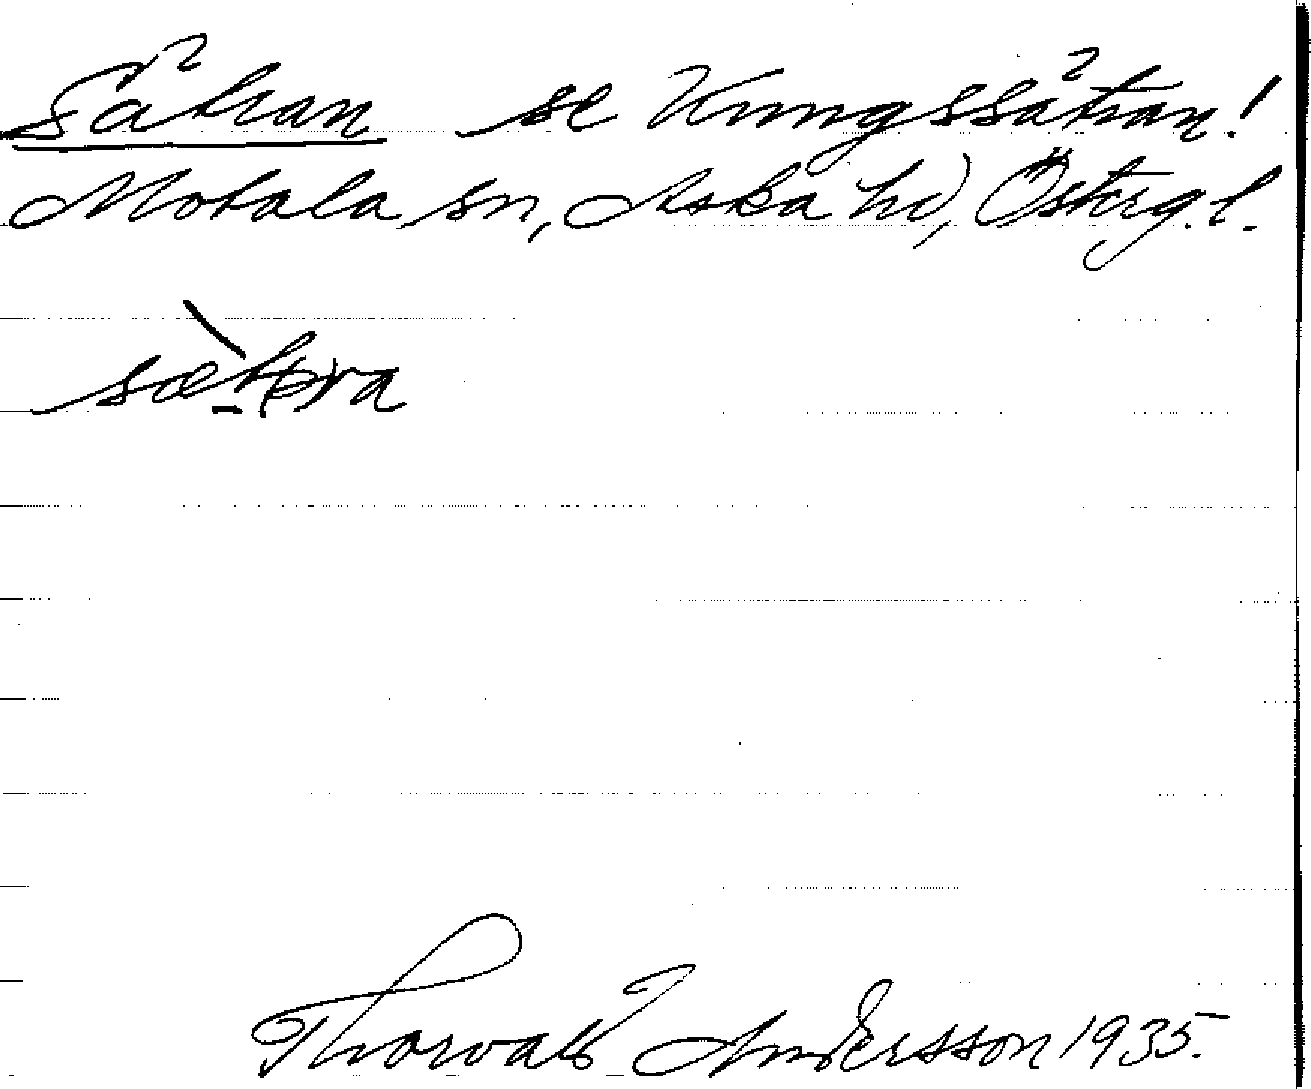 Sätran se Kungssätran!
Motala sn, Aska hd, Östergl.
sæ̀t(ə)ra
Thorvald Andersson 1935.